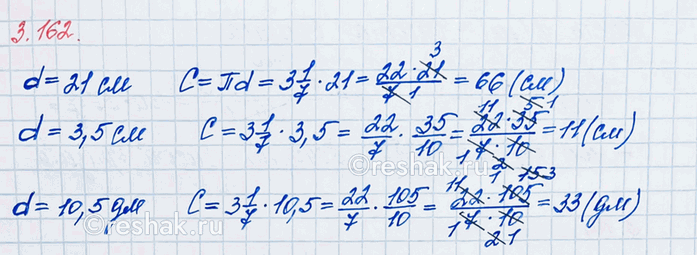 3.162.
d = 21 см C = πd = 3 1/7 · 21 = 22 · 21 3 / 7 1 = 66 (см)
d = 3,5 см C = 3 1/7 · 3,5 = 22/7 · 35/10 = 11 22 · 35 5 1 / 1 7 · 10 2 1 = 11 (см)
d = 10,5 дм C = 3 1/7 · 10,5 = 22/7 · 105/10 = 11 22 · 105 15 3 / 1 7 · 10 2 1 = 33 (дм)
©reshak.ru
©reshak.ru